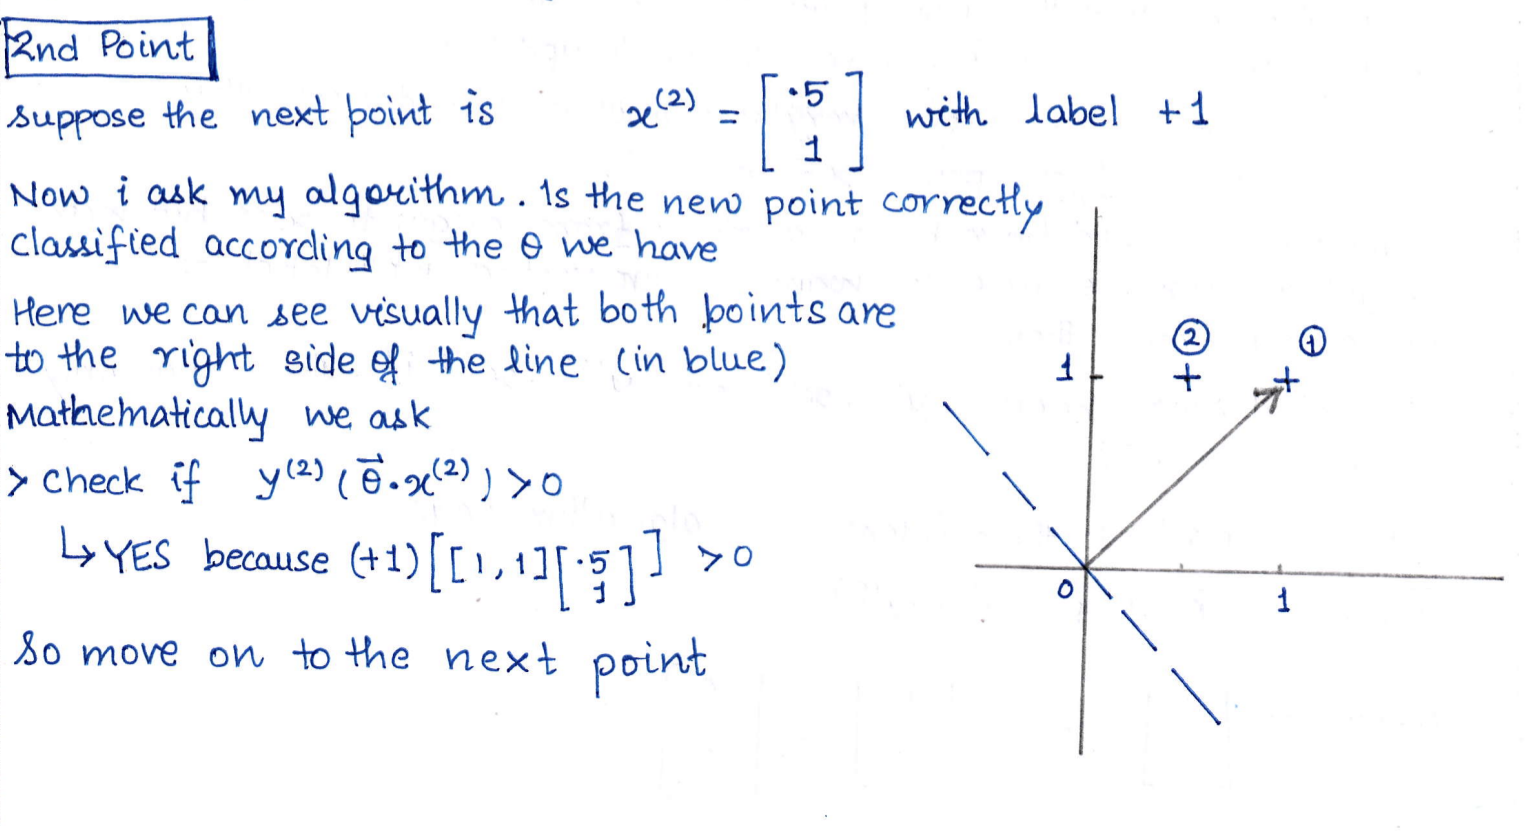 2nd Point
suppose the next point is x^(2) = [.5 1] with label +1
Now i ask my algorithm. Is the new point correctly
classified according to the θ we have
Here we can see visually that both points are
to the right side of the line (in blue)
Mathematically we ask
> check if y^(2) (θ⃗.x^(2)) >0
↳ YES because (+1)[[1,1][.5 1]] >0
so move on to the next point
② ①
1
+ +
0
1